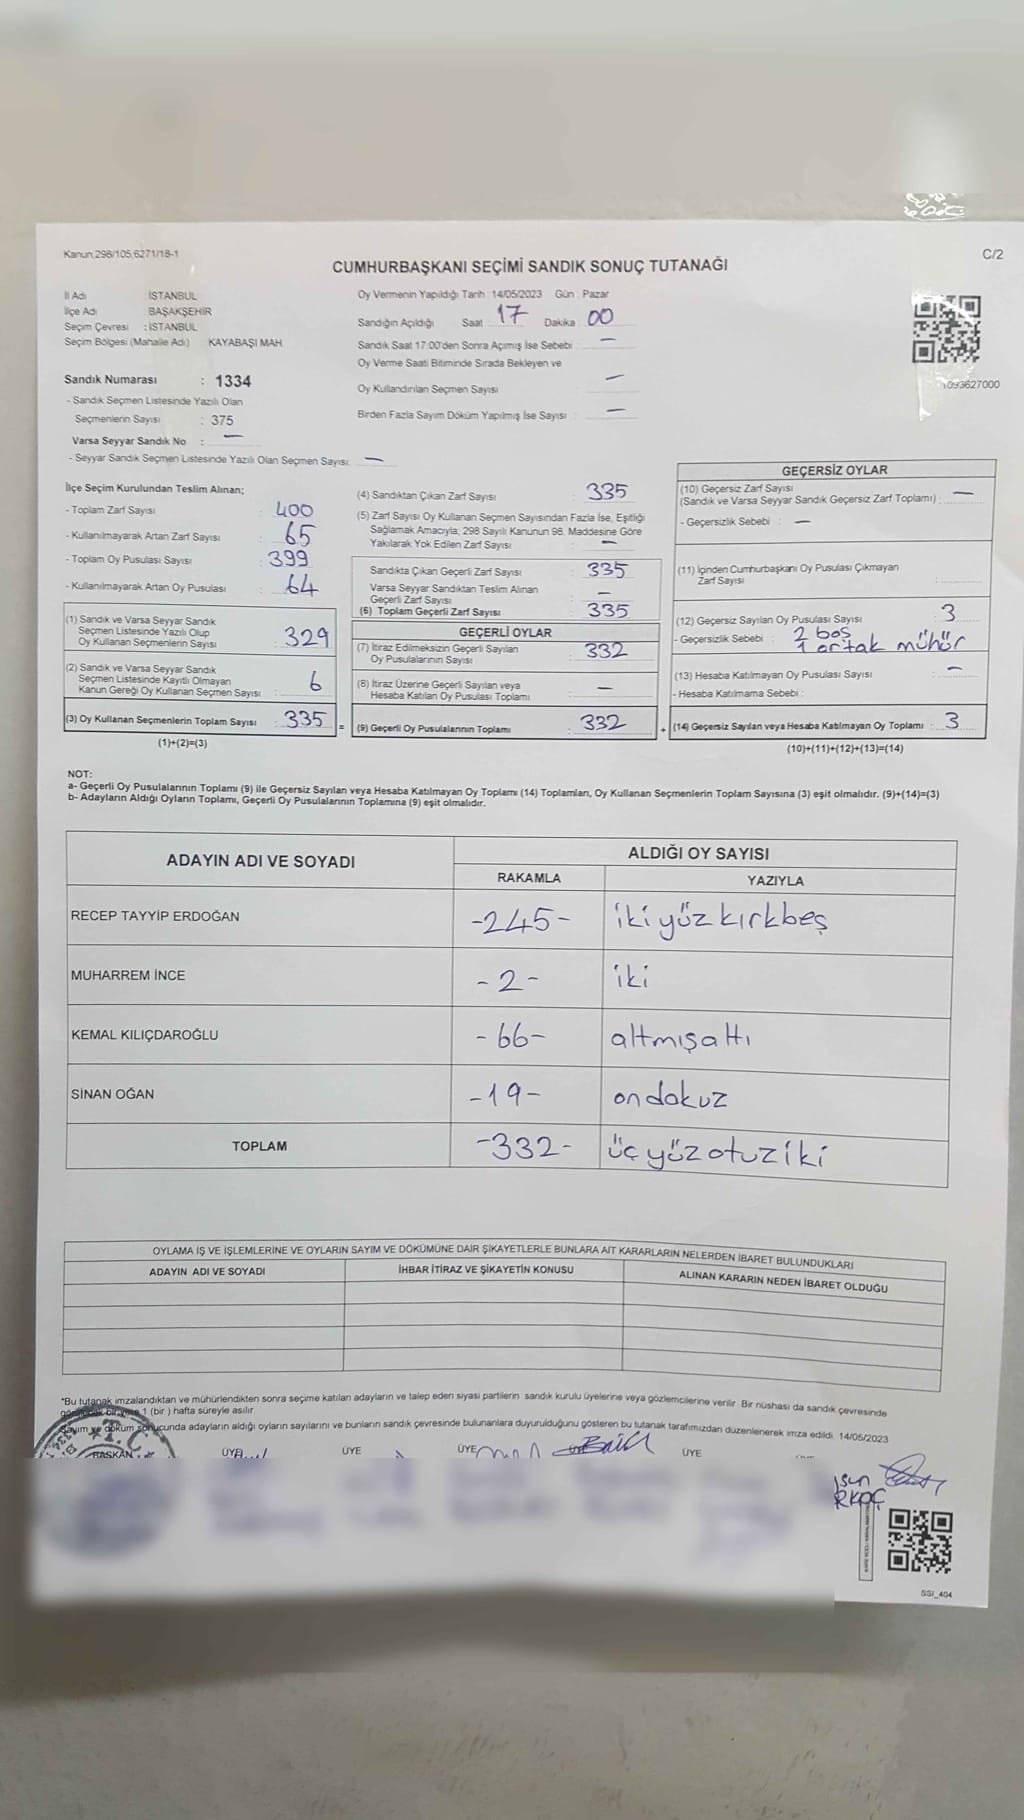 Kanun;298/105,6271/18-1
C/2
CUMHURBAŞKANI SEÇİMİ SANDIK SONUÇ TUTANAĞI
İl Adı İSTANBUL
İlçe Adı BAŞAKŞEHİR
Seçim Çevresi : İSTANBUL
Seçim Bölgesi (Mahalle Adı) KAYABAŞI MAH
Oy Vermenin Yapıldığı Tarih : 14/05/2023 Gün : Pazar
Sandığın Açıldığı Saat 17 Dakika 00
Sandık Saat 17:00'den Sonra Açımış İse Sebebi : —
Oy Verme Saati Bitiminde Sırada Bekleyen ve
Oy Kullandırılan Seçmen Sayısı —
Birden Fazla Sayım Döküm Yapılmış İse Sayısı : —
1093627000
Sandık Numarası : 1334
- Sandık Seçmen Listesinde Yazılı Olan
Seçmenlerin Sayısı : 375
Varsa Seyyar Sandık No : —
- Seyyar Sandık Seçmen Listesinde Yazılı Olan Seçmen Sayısı: —
İlçe Seçim Kurulundan Teslim Alınan;
- Toplam Zarf Sayısı : 400
- Kullanılmayarak Artan Zarf Sayısı : 65
- Toplam Oy Pusulası Sayısı : 399
- Kullanılmayarak Artan Oy Pusulası : 64
(1) Sandık ve Varsa Seyyar Sandık
Seçmen Listesinde Yazılı Olup
Oy Kullanan Seçmenlerin Sayısı : 329
(2) Sandık ve Varsa Seyyar Sandık
Seçmen Listesinde Kayıtlı Olmayan
Kanun Gereği Oy Kullanan Seçmen Sayısı : 6
(3) Oy Kullanan Seçmenlerin Toplam Sayısı : 335 =
(1)+(2)=(3)
(4) Sandıktan Çıkan Zarf Sayısı : 335
(5) Zarf Sayısı Oy Kullanan Seçmen Sayısından Fazla İse, Eşitliği
Sağlamak Amacıyla, 298 Sayılı Kanunun 98. Maddesine Göre
Yakılarak Yok Edilen Zarf Sayısı : —
Sandıkta Çıkan Geçerli Zarf Sayısı : 335
Varsa Seyyar Sandıktan Teslim Alınan
Geçerli Zarf Sayısı : —
(6) Toplam Geçerli Zarf Sayısı : 335
GEÇERLİ OYLAR
(7) İtiraz Edilmeksizin Geçerli Sayılan
Oy Pusulalarının Sayısı : 332
(8) İtiraz Üzerine Geçerli Sayılan veya
Hesaba Katılan Oy Pusulası Toplamı : —
(9) Geçerli Oy Pusulalarının Toplamı : 332 +
GEÇERSİZ OYLAR
(10) Geçersiz Zarf Sayısı
(Sandık ve Varsa Seyyar Sandık Geçersiz Zarf Toplamı) : —
- Geçersizlik Sebebi : —
(11) İçinden Cumhurbaşkanı Oy Pusulası Çıkmayan
Zarf Sayısı :
(12) Geçersiz Sayılan Oy Pusulası Sayısı : 3
- Geçersizlik Sebebi : 2 boş
1 ortak mühür
(13) Hesaba Katılmayan Oy Pusulası Sayısı : —
- Hesaba Katılmama Sebebi :
(14) Geçersiz Sayılan veya Hesaba Katılmayan Oy Toplamı : 3
(10)+(11)+(12)+(13)=(14)
NOT:
a- Geçerli Oy Pusulalarının Toplamı (9) ile Geçersiz Sayılan veya Hesaba Katılmayan Oy Toplamı (14) Toplamları, Oy Kullanan Seçmenlerin Toplam Sayısına (3) eşit olmalıdır. (9)+(14)=(3)
b- Adayların Aldığı Oyların Toplamı, Geçerli Oy Pusulalarının Toplamına (9) eşit olmalıdır.
ADAYIN ADI VE SOYADI
ALDIĞI OY SAYISI
RAKAMLA YAZIYLA
RECEP TAYYİP ERDOĞAN -245- iki yüz kırkbeş
MUHARREM İNCE -2- iki
KEMAL KILIÇDAROĞLU -66- altmışaltı
SİNAN OĞAN -19- ondokuz
TOPLAM -332- üç yüz otuziki
OYLAMA İŞ VE İŞLEMLERİNE VE OYLARIN SAYIM VE DÖKÜMÜNE DAİR ŞİKAYETLERLE BUNLARA AİT KARARLARIN NELERDEN İBARET BULUNDUKLARI
ADAYIN ADI VE SOYADI İHBAR İTİRAZ VE ŞİKAYETİN KONUSU ALINAN KARARIN NEDEN İBARET OLDUĞU
*Bu tutanak imzalandıktan ve mühürlendikten sonra seçime katılan adayların ve talep eden siyasi partilerin sandık kurulu üyelerine veya gözlemcilerine verilir. Bir nüshası da sandık çevresinde
1 (bir) hafta süreyle asılır.
Sayım ve döküm sonucunda adayların aldığı oyların sayılarını ve bunların sandık çevresinde bulunanlara duyurulduğunu gösteren bu tutanak tarafımızdan düzenlenerek imza edildi. 14/05/2023
T.C.
BAŞKAN ÜYE ÜYE ÜYE ÜYE
SSI_404